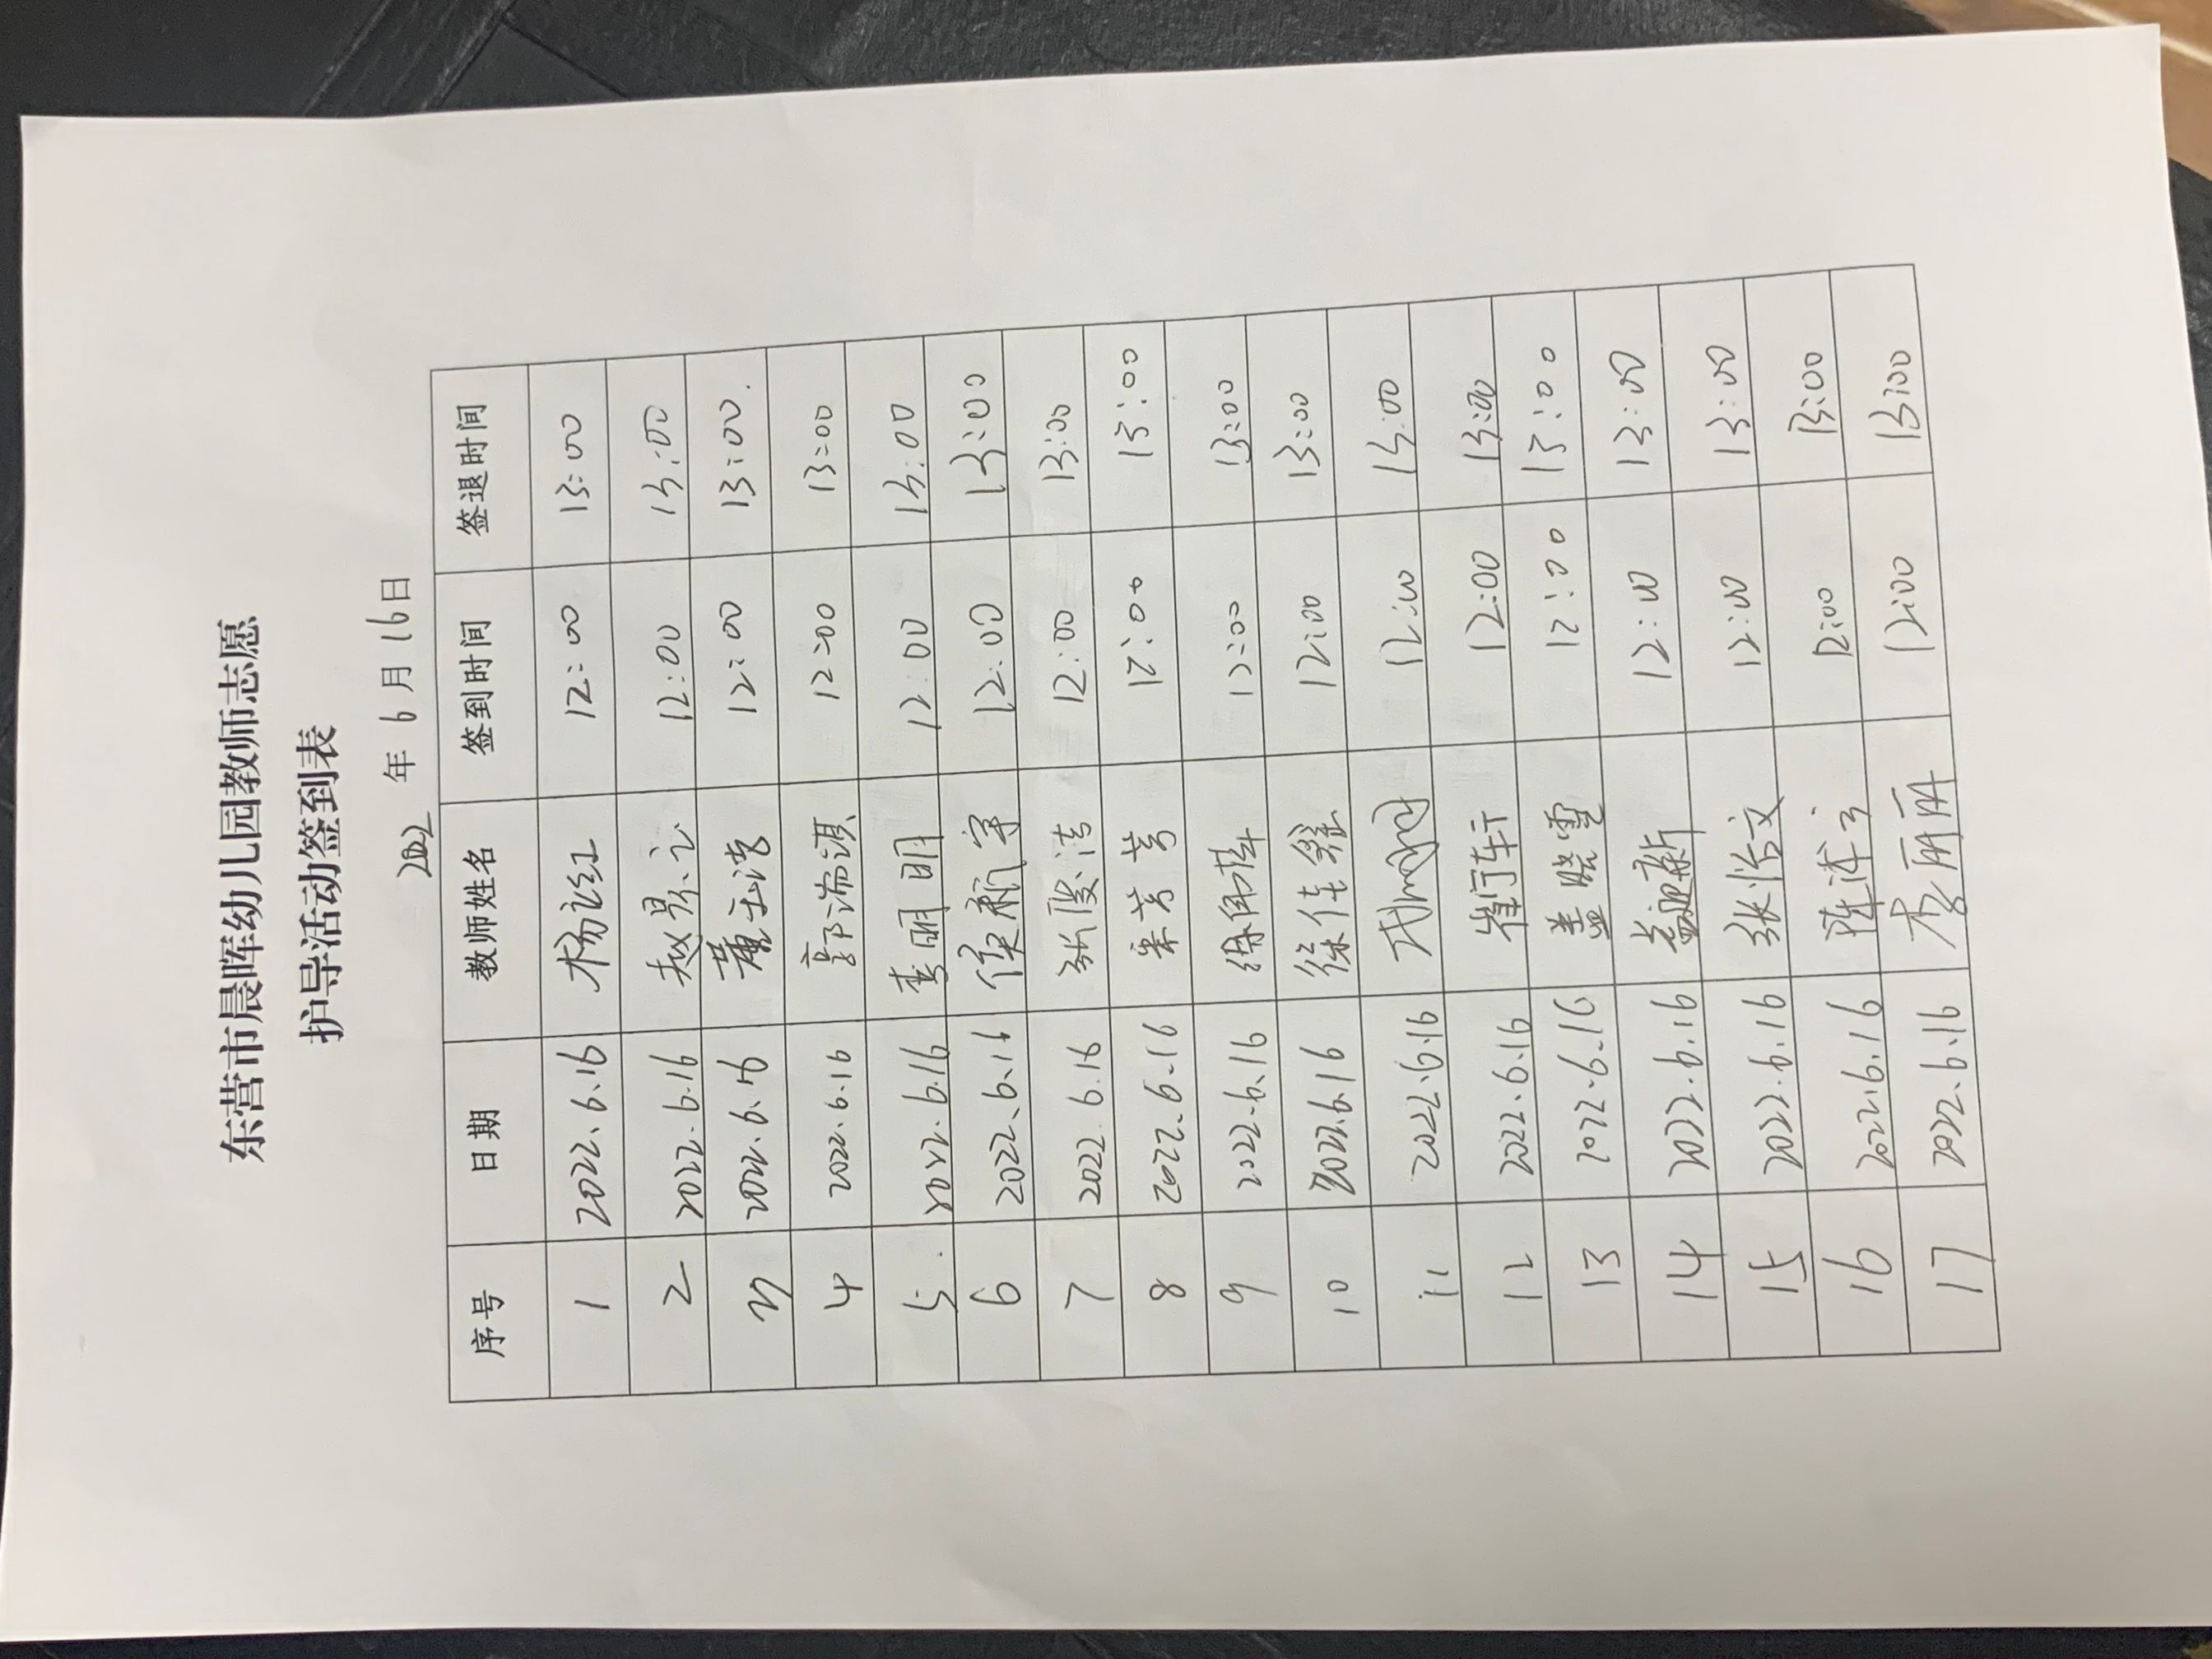 东营市晨晖幼儿园教师志愿
护导活动签到表
2022 年 6 月 16 日
序号 日期 教师姓名 签到时间 签退时间
1 2022.6.16 杨红 12:00 13:00
2 2022.6.16 赵 12:00 13:00
3 2022.6.16 董玉 12:00 13:00.
4 2022.6.16 郭瑞淇 12:00 13:00
5. 2022.6.16 李明明 12:00 13:00
6 2022.6.16 侯新宇 12:00 13:00
7 2022.6.16 张俊洁 12:00 13:00
8 2022.6.16 来芳芳 12:00 13:00
9 2022.6.16 12:00 13:00
10 2022.6.16 徐佳鑫 12:00 13:00
11 2022.6.16 12:00 13:00
12 2022.6.16 崔宁轩 12:00 13:00
13 2022.6.16 盖晓雪 12:00 13:00
14 2022.6.16 盖迎新 12:00 13:00
15 2022.6.16 张怡文 12:00 13:00
16 2022.6.16 12:00 13:00
17 2022.6.16 李丽丽 12:00 13:00